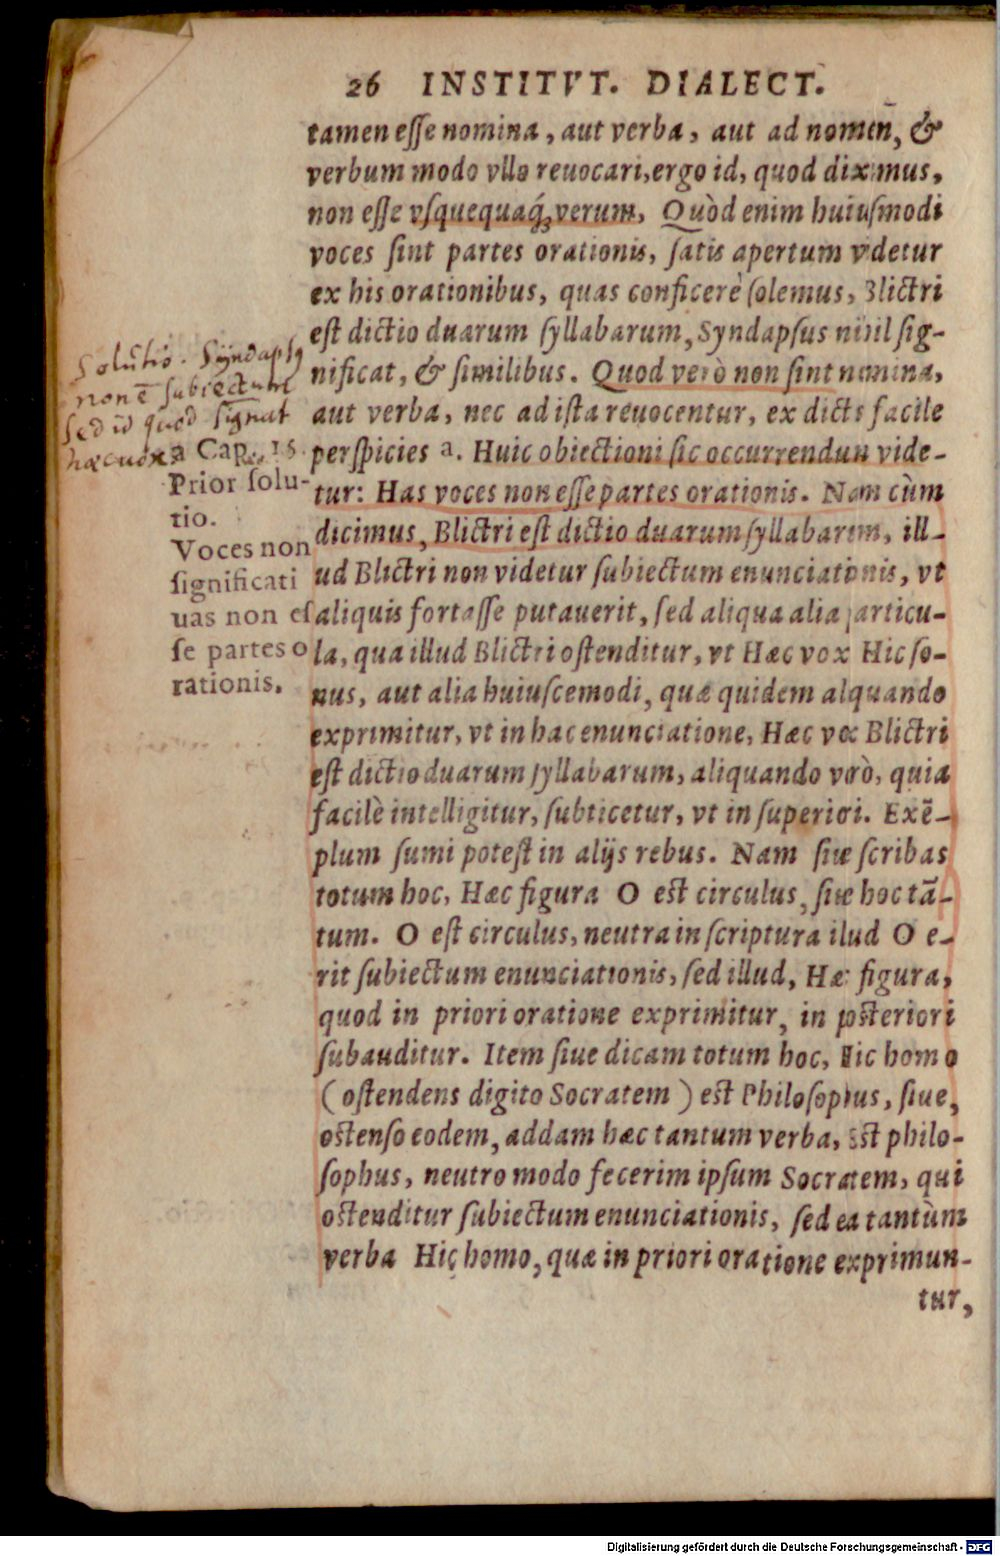 26 INSTITVT. DIALECT.
tamen esse nomina, aut verba, aut ad nomen̄, &
verbum modo vllo reuocari, ergo id, quod diximus,
non esse vsquequaq́; verum. Quòd enim huiusmodi
voces sint partes orationis, satis apertum videtur
ex his orationibus, quas conficerè solemus, Blictri
est dictio duarum syllabarum, Syndapsus nihil sig-
nificat, & similibus. Quod verò non sint nomina,
aut verba, nec ad ista reuocentur, ex dictis facile
perspicies a. Huic obiectioni sic occurrendun vide-
tur: Has voces non esse partes orationis. Nam cùm
dicimus, Blictri est dictio duarum syllabarum, ill-
ud Blictri non videtur subiectum enunciationis, vt
aliquis fortasse putauerit, sed aliqua alia particu-
la, qua illud Blictri ostenditur, vt Hæc vox Hic so-
nus, aut alia huiuscemodi, quæ quidem alquando
exprimitur, vt in hac enunciatione, Hæc vox Blictri
est dictio duarum syllabarum, aliquando verò, quia
facilè intelligitur, subticetur, vt in superiori. Exē-
plum sumi potest in alijs rebus. Nam siue scribas
totum hoc, Hæc figura O est circulus, siue hoc tā-
tum. O est circulus, neutra in scriptura illud O e-
rit subiectum enunciationis, sed illud, Hæc figura,
quod in priori oratione exprimitur, in posteriori
subauditur. Item siue dicam totum hoc, Hic homo
(ostendens digito Socratem) est Philosophus, siue,
ostenso eodem, addam hæc tantum verba, Est philo-
sophus, neutro modo fecerim ipsum Socratem, qui
ostenditur subiectum enunciationis, sed ea tantùm
verba Hic homo, quæ in priori oratione exprimun-
tur,
Solutio. Syndapsq
non ē subiectum
sed id quod signat
hæc uox
a Cap. 15.
Prior solu-
tio.
Voces non
significati
uas non es
se partes o
rationis.
Digitalisierung gefördert durch die Deutsche Forschungsgemeinschaft - DFG